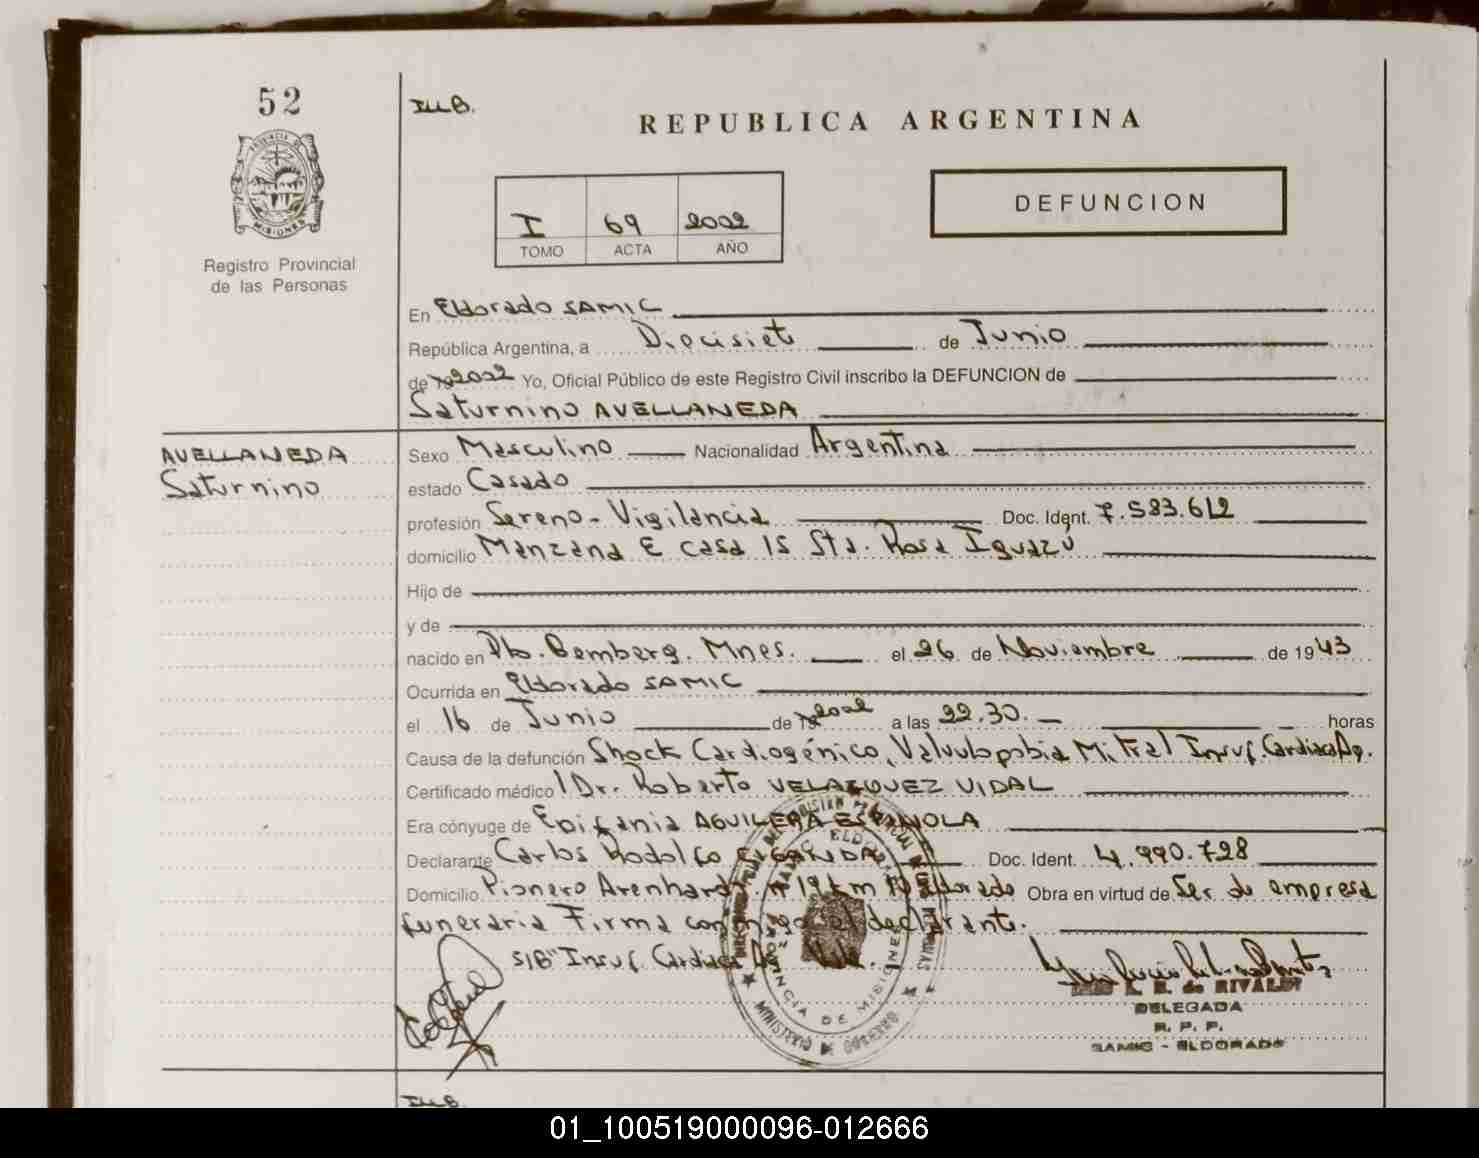 52
I.u.B.
REPUBLICA ARGENTINA
PROVINCIA DE
MISIONES
Registro Provincial
de las Personas
I 69 2002
TOMO ACTA AÑO
DEFUNCION
En Eldorado SAMIC
República Argentina, a Diecisiete de Junio
de 2002 Yo, Oficial Público de este Registro Civil inscribo la DEFUNCION de
Saturnino AVELLANEDA
AVELLANEDA
Saturnino
Sexo Masculino Nacionalidad Argentina
estado Casado
profesión Sereno - Vigilancia Doc. Ident. 7.583.612
domicilio Manzana E casa 15 Sta. Rosa Iguazú
Hijo de
y de
nacido en Pto. Bemberg. Mnes. el 26 de Noviembre de 1943
Ocurrida en Eldorado SAMIC
el 16 de Junio de 2002 a las 22.30. horas
Causa de la defunción Shock Cardiogénico, Valvulopatia Mitral Insuf. Cardiaca Ag.
Certificado médico Dr. Roberto VELAZQUEZ VIDAL
Era cónyuge de Epifania AGUILERA ESPAÑOLA
Declarante Carlos Rodolfo Doc. Ident. 4.990.728
Domicilio Pionero Arenhardt n° 19 km 10 Eldorado Obra en virtud de Ser de empresa
funeraria Firma conmigo el declarante.
S/B "Insuf. Cardiaca Ag. Vale.
L. R. de RIVALDI
DELEGADA
R. P. P.
SAMIC - ELDORADO
PROVINCIA DE MISIONES
MINISTERIO DE GOBIERNO
I.u.B.
01_100519000096-012666